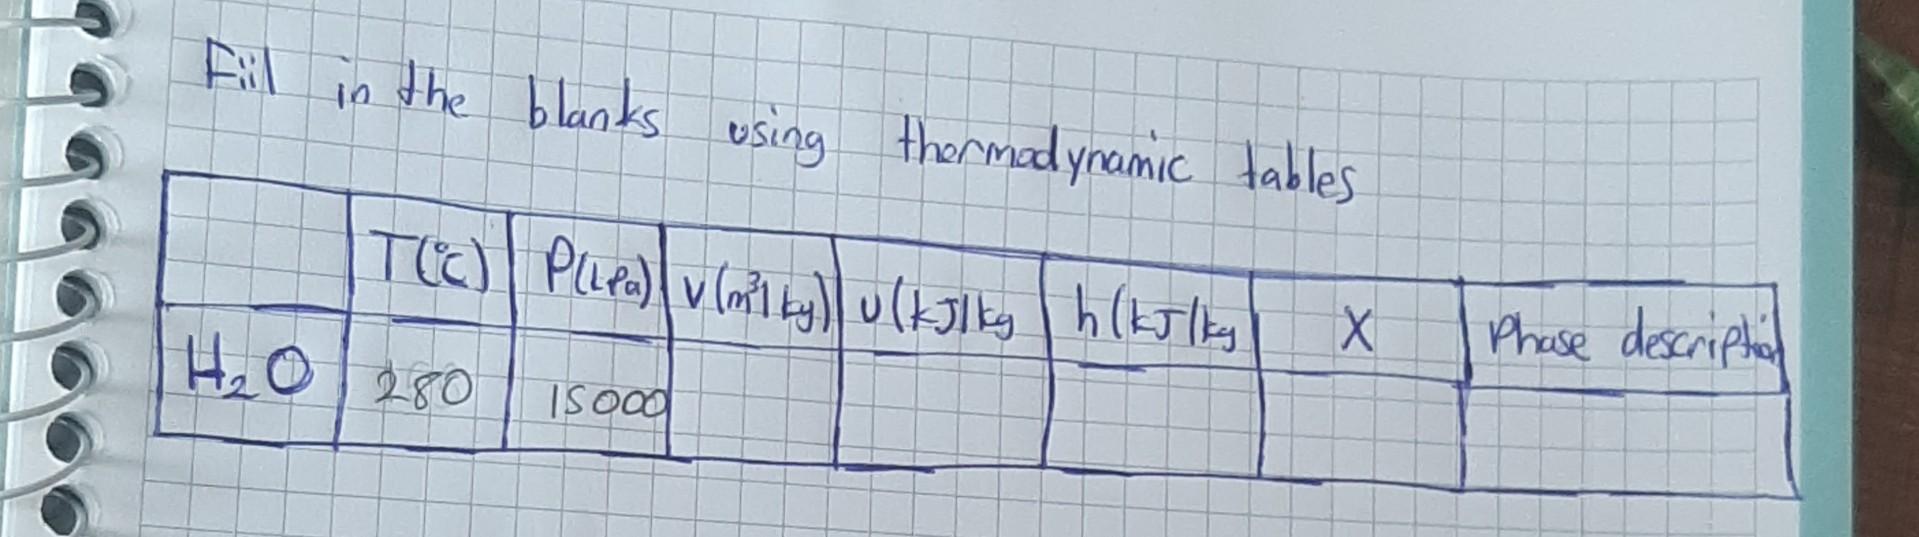 Fiil in the blanks using thermodynamic tables
T(°C) P(kPa) v(m³/kg) u(kJ/kg h(kJ/kg X Phase description
H₂O 280 15000